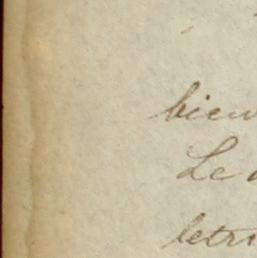 bien
Le
letr